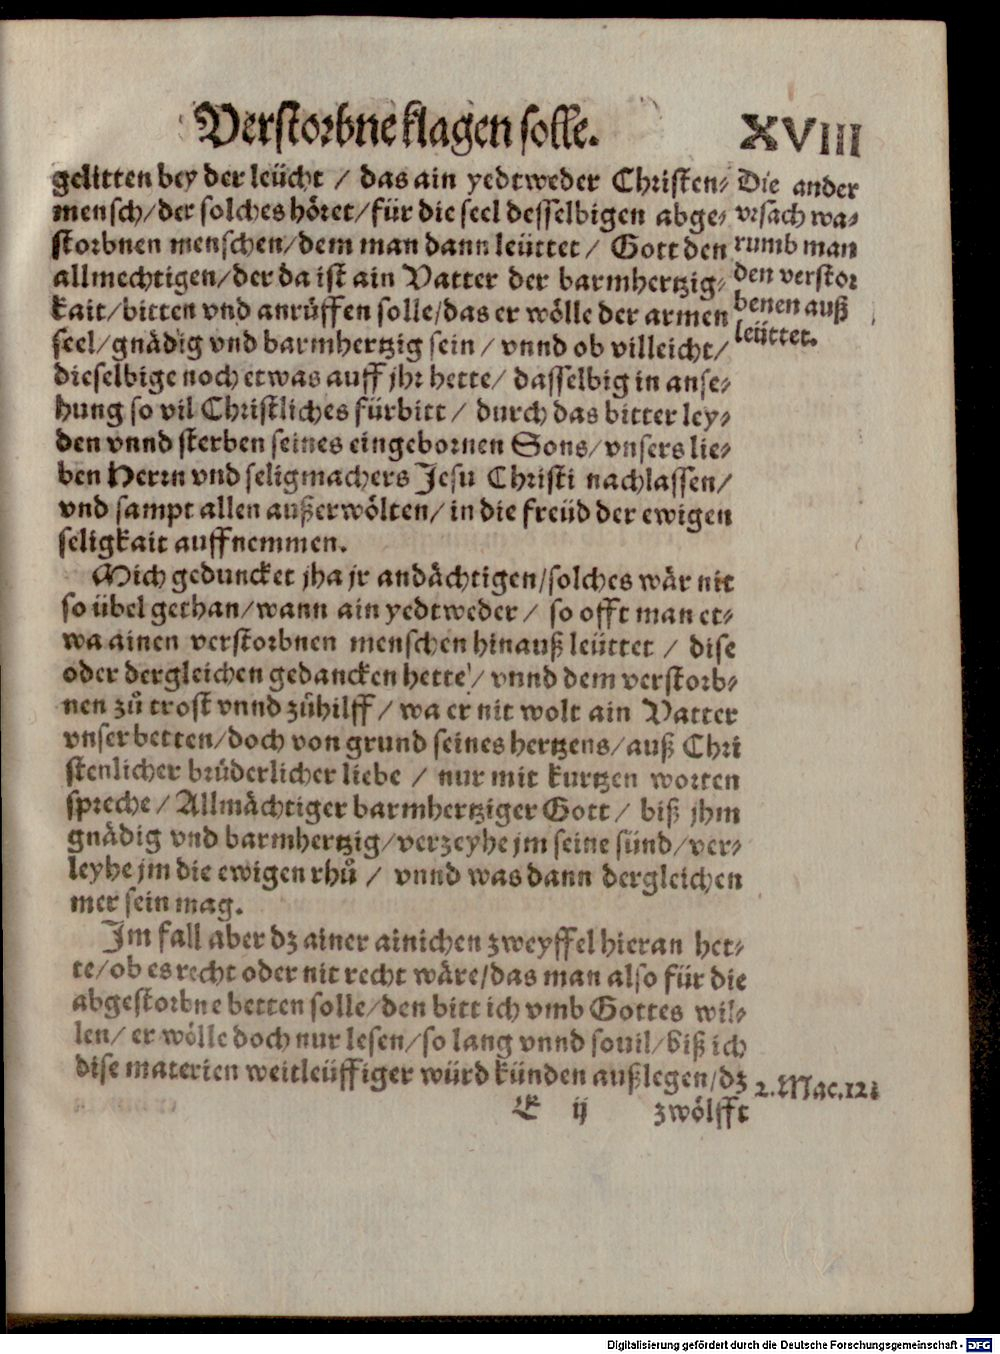 Verstorbne klagen solle. XVIII
gelitten bey der leücht / das ain yedtweder Christen⸗
mensch/der solches höret/für die seel desselbigen abge⸗
storbnen menschen/dem man dann leüttet / Gott den
allmechtigen/der da ist ain Vatter der barmhertzig⸗
kait/bitten vnd anrüffen solle/das er wölle der armen
seel/gnädig vnd barmhertzig sein / vnnd ob villeicht/
dieselbige noch etwas auff jhr hette/ dasselbig in anse⸗
hung so vil Christliches fürbitt / durch das bitter ley⸗
den vnnd sterben seines eingebornen Sons/vnsers lie⸗
ben Herrn vnd seligmachers Jesu Christi nachlassen/
vnd sampt allen außerwölten/in die freüd der ewigen
seligkait auffnemmen.
Mich geduncket jha jr andächtigen/solches wär nit
so übel gethan/wann ain yedtweder / so offt man et⸗
wa ainen verstorbnen menschen hinauß leüttet / dise
oder dergleichen gedancken hette / vnnd dem verstorb⸗
nen zů trost vnnd zůhilff / wa er nit wolt ain Vatter
vnser betten/doch von grund seines hertzens/auß Chri
stenlicher brüderlicher liebe / nur mit kurtzen worten
spreche / Allmächtiger barmhertziger Gott / biß jhm
gnädig vnd barmhertzig/verzeyhe jm seine sünd/ver⸗
leyhe jm die ewigen rhů / vnnd was dann dergleichen
mer sein mag.
Im fall aber dz ainer ainichen zweyffel hieran het⸗
te/ob es recht oder nit recht wäre/das man also für die
abgestorbne betten solle/den bitt ich vmb Gottes wil⸗
len/ er wölle doch nur lesen/so lang vnnd souil/biß ich
dise materien weitleüffiger würd künden außlegen/dz
E ij zwölfft
Die ander
vrsach wa⸗
rumb man
den verstor
benen auß
leüttet.
2. Mac. 12.
Digitalisierung gefördert durch die Deutsche Forschungsgemeinschaft - DFG